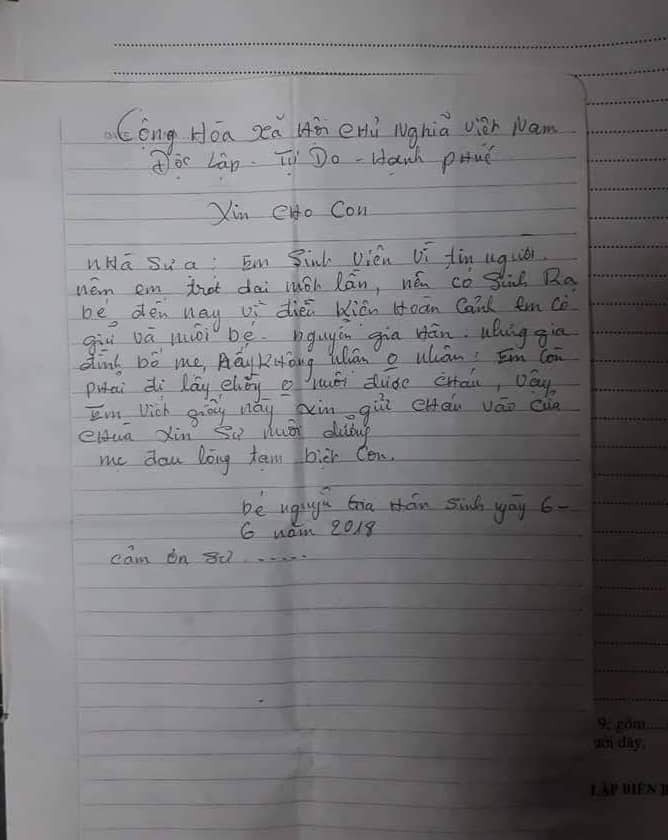 Cộng Hòa Xã Hội Chủ Nghĩa Việt Nam
Độc Lập - Tự Do - Hạnh phúc
Xin cho con
Nhà Sư ạ: Em Sinh Viên Vì tin người
nêm em trót dại một lần, nên có Sinh Ra
bé đến nay vì điều Kiện Hoàn Cảnh Em Cố
giữ và nuôi bé. nguyễn gia Hân. nhưng gia
đình bố mẹ, Không nhân o nhân: Em Còn
phải đi lấy chồng o nuôi được cháu, vậy
Em Viết giấy này xin gửi cháu vào cửa
chùa xin Sư nuôi dưỡng
mẹ đau lòng tạm biệt con.
bé nguyễn Gia Hân Sinh 6-
6 năm 2018
cảm ơn sư .....
9; gồm
ưới đây.
LẬP BIÊN B